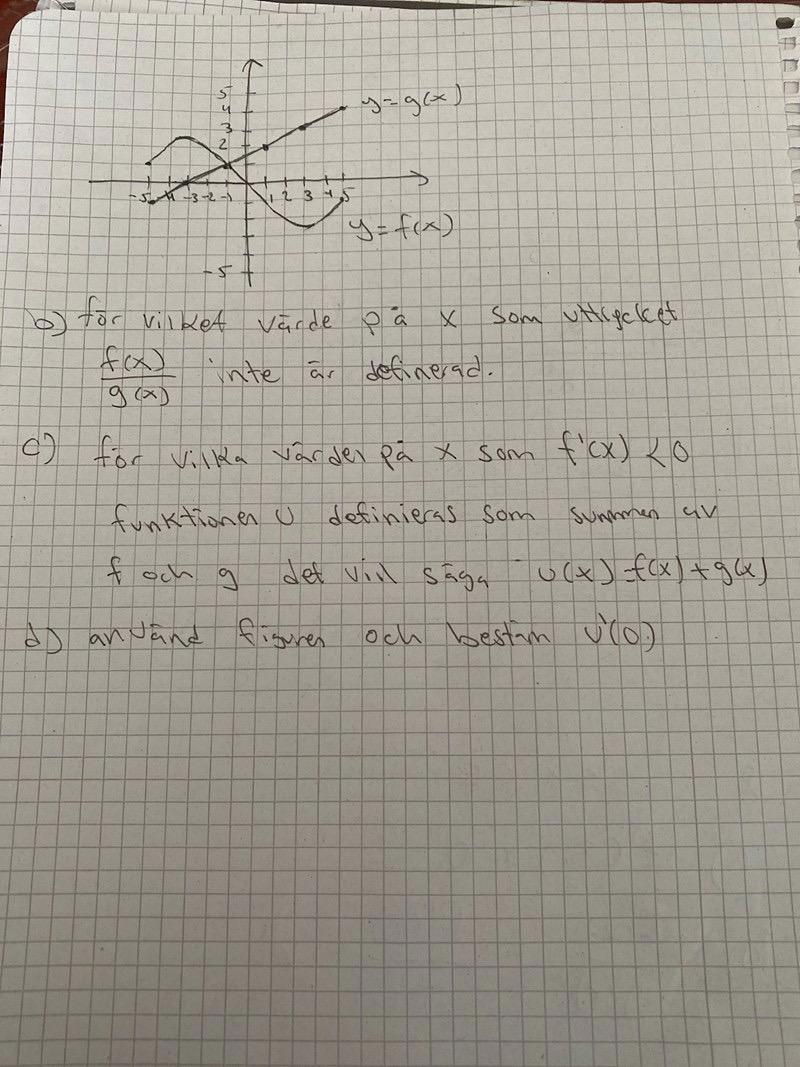 5
4 y=g(x)
3
2
-5 -4 -3 -2 -1 1 2 3 4 5
y=f(x)
-5
b) för vilket värde på x som uttrycket
f(x)
g(x) inte är definerad.
c) för vilka värder på x som f'(x) < 0
funktionen U definieras som summan av
f och g det vill säga U(x)=f(x)+g(x)
d) använd figuren och bestäm U'(0)